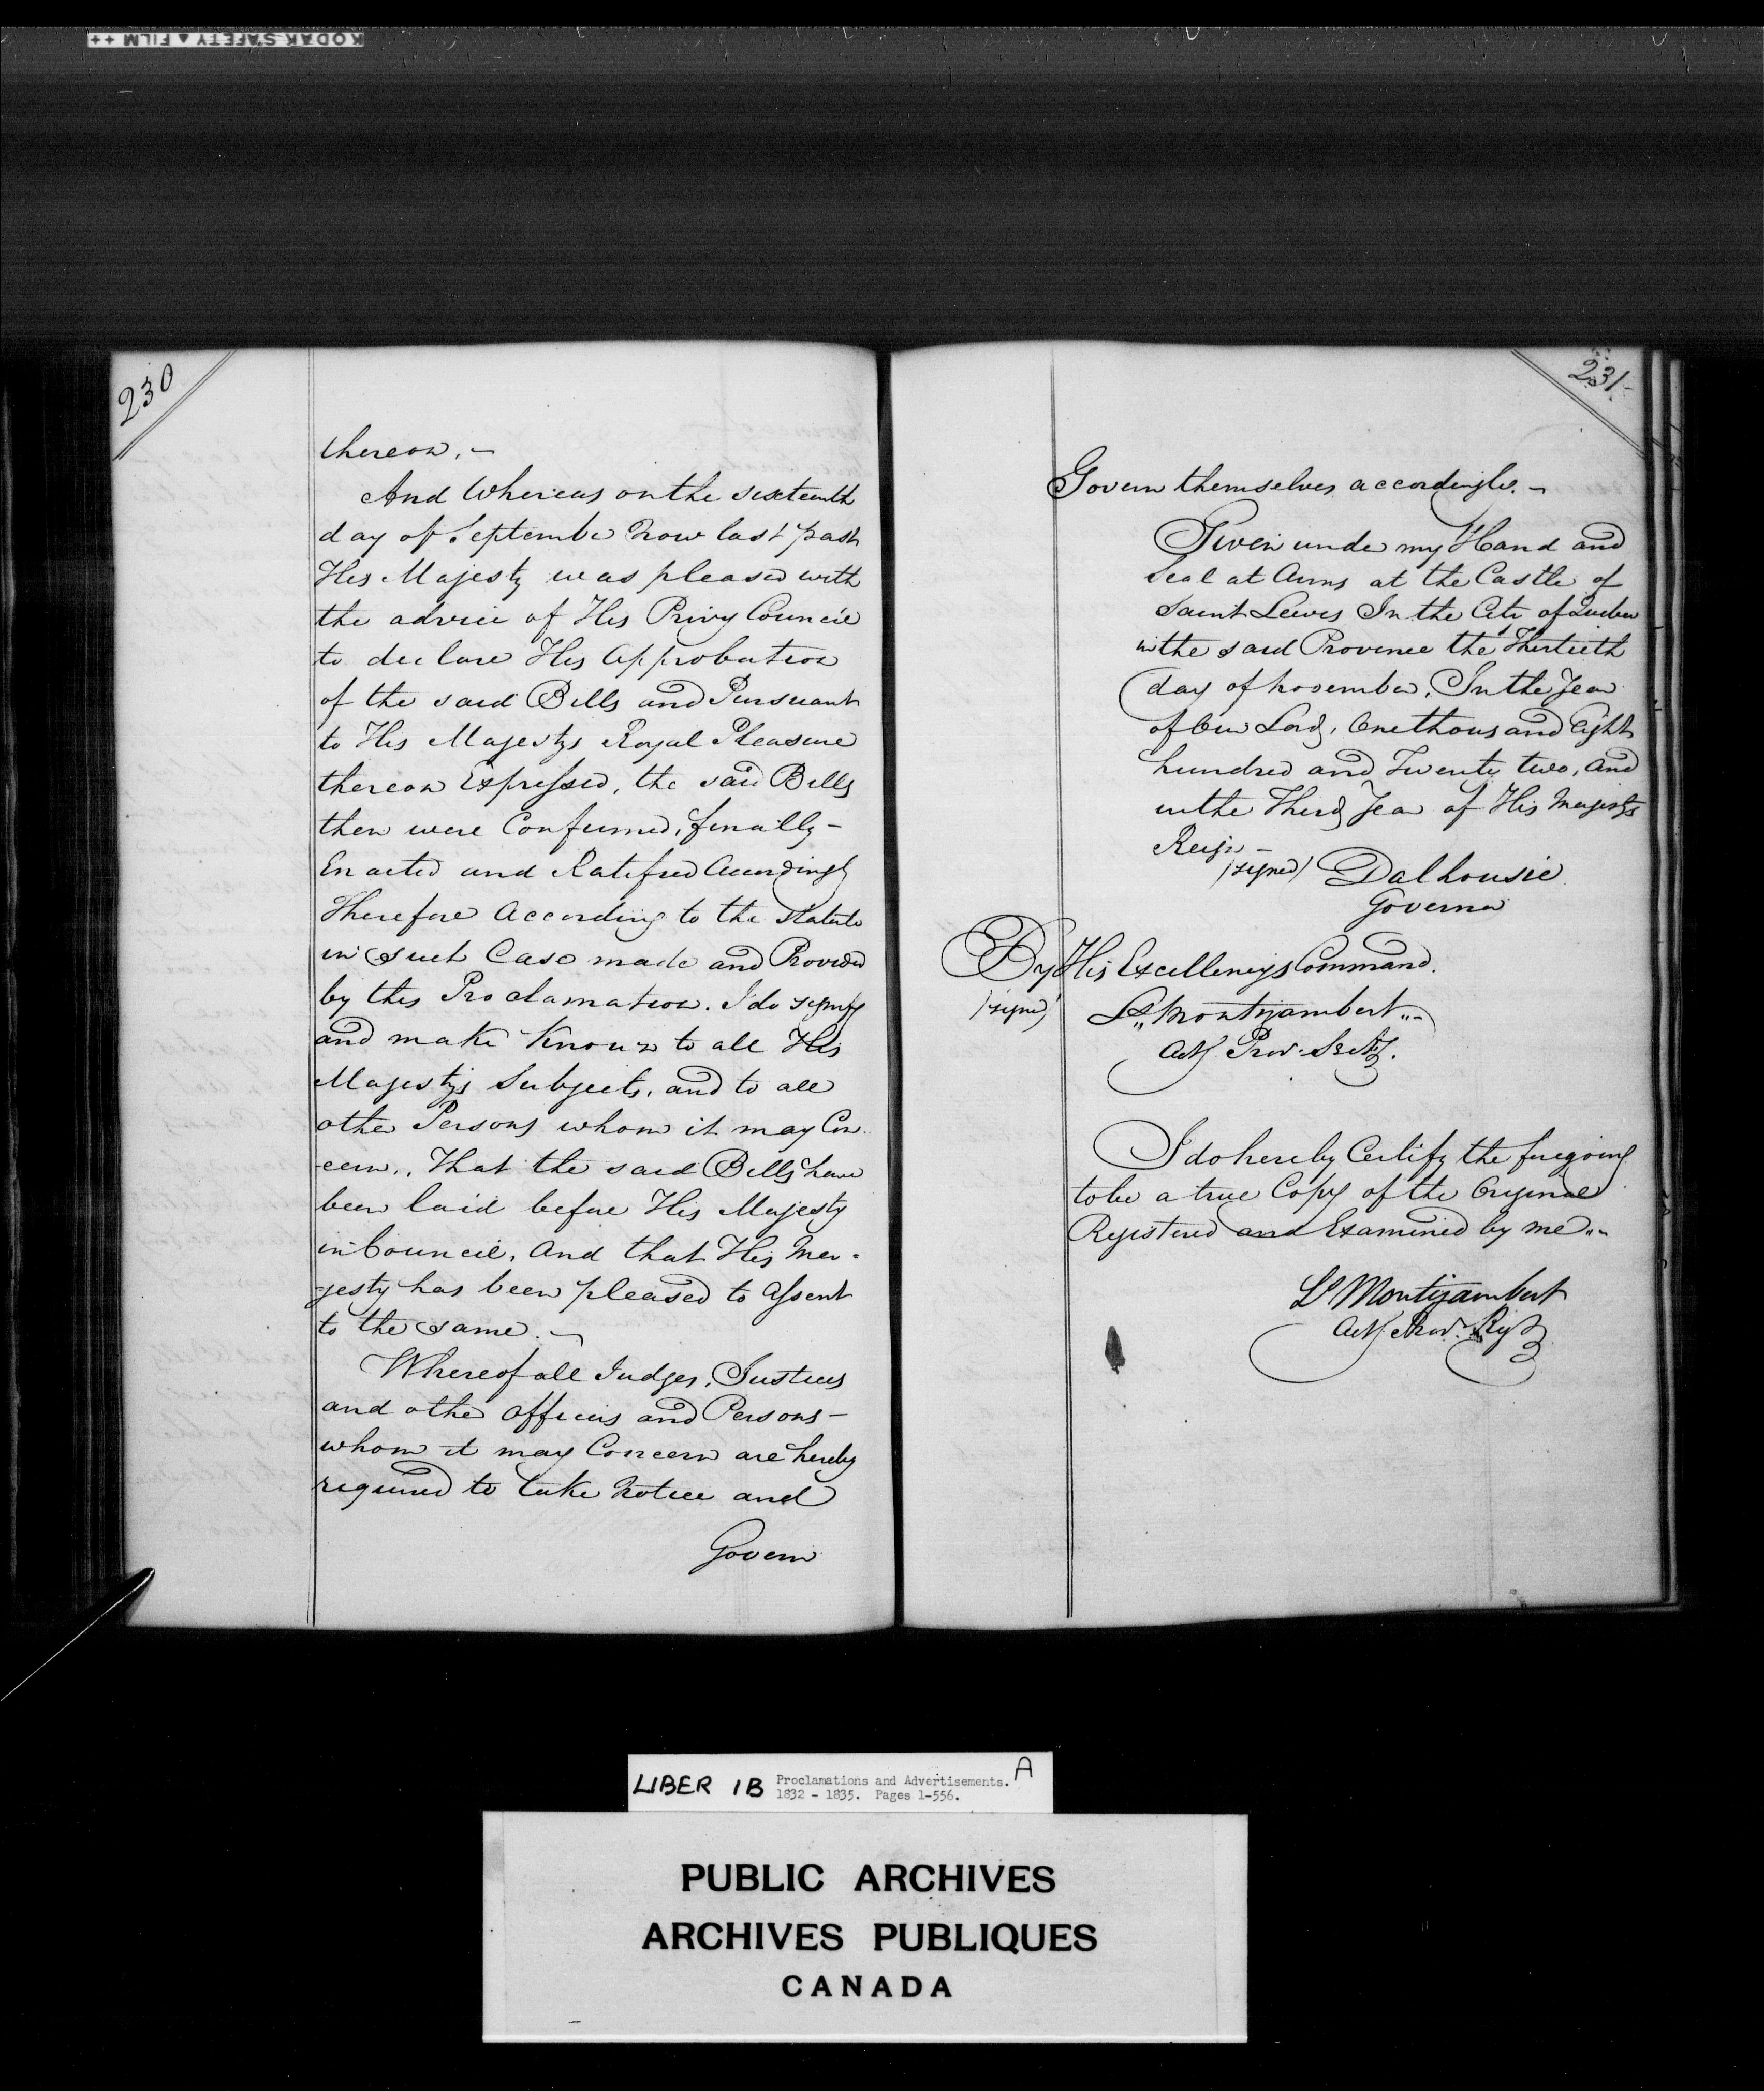 KODAK SAFETY ▲ FILM ++
230
thereon. —
And Whereas on the sixteenth
day of September Now last past
His Majesty was pleased with
the advice of His Privy Council
to declare His Approbation
of the said Bills and Pursuant
to His Majestys Royal Pleasure
thereon Expressed, the said Bills
then were Confirmed, finally —
Enacted and Ratified Accordingly
Therefore According to the Statute
in Such Case made and Provided
by this Proclamation. I do signify
and make Known to all His
Majesty's Subjects, and to all
other Persons whom it may Con
-cern,, That the said Bills have
been laid before His Majesty
in Council, And that His Ma-
-jesty has been pleased to Assent
to the same. —
Whereof all Judges, Justices
and other officers and Persons —
whom it may Concern are hereby
required to take Notice and
Govern
231
Govern themselves accordingly. —
Given under my Hand and
Seal at Arms at the Castle of
Saint Lewis In the City of Quebec
in the said Province the Thirtieth
day of November, In the Year
of Our Lord, One thousand Eight
hundred and Twenty two, and
in the Third Year of His Majestys
Reign —
(signed) Dalhousie
Governor
By His Excellencys Command.
(signed) Ls Montizambert
Actg. Prov. Secrety.
I do hereby Certify the foregoing
to be a true Copy of the Original
Registered and Examined by me
Ls Montizambert
Actg. Prov. Regr
LIBER 1B Proclamations and Advertisements. A
1832 - 1835. Pages 1-556.
PUBLIC ARCHIVES
ARCHIVES PUBLIQUES
CANADA